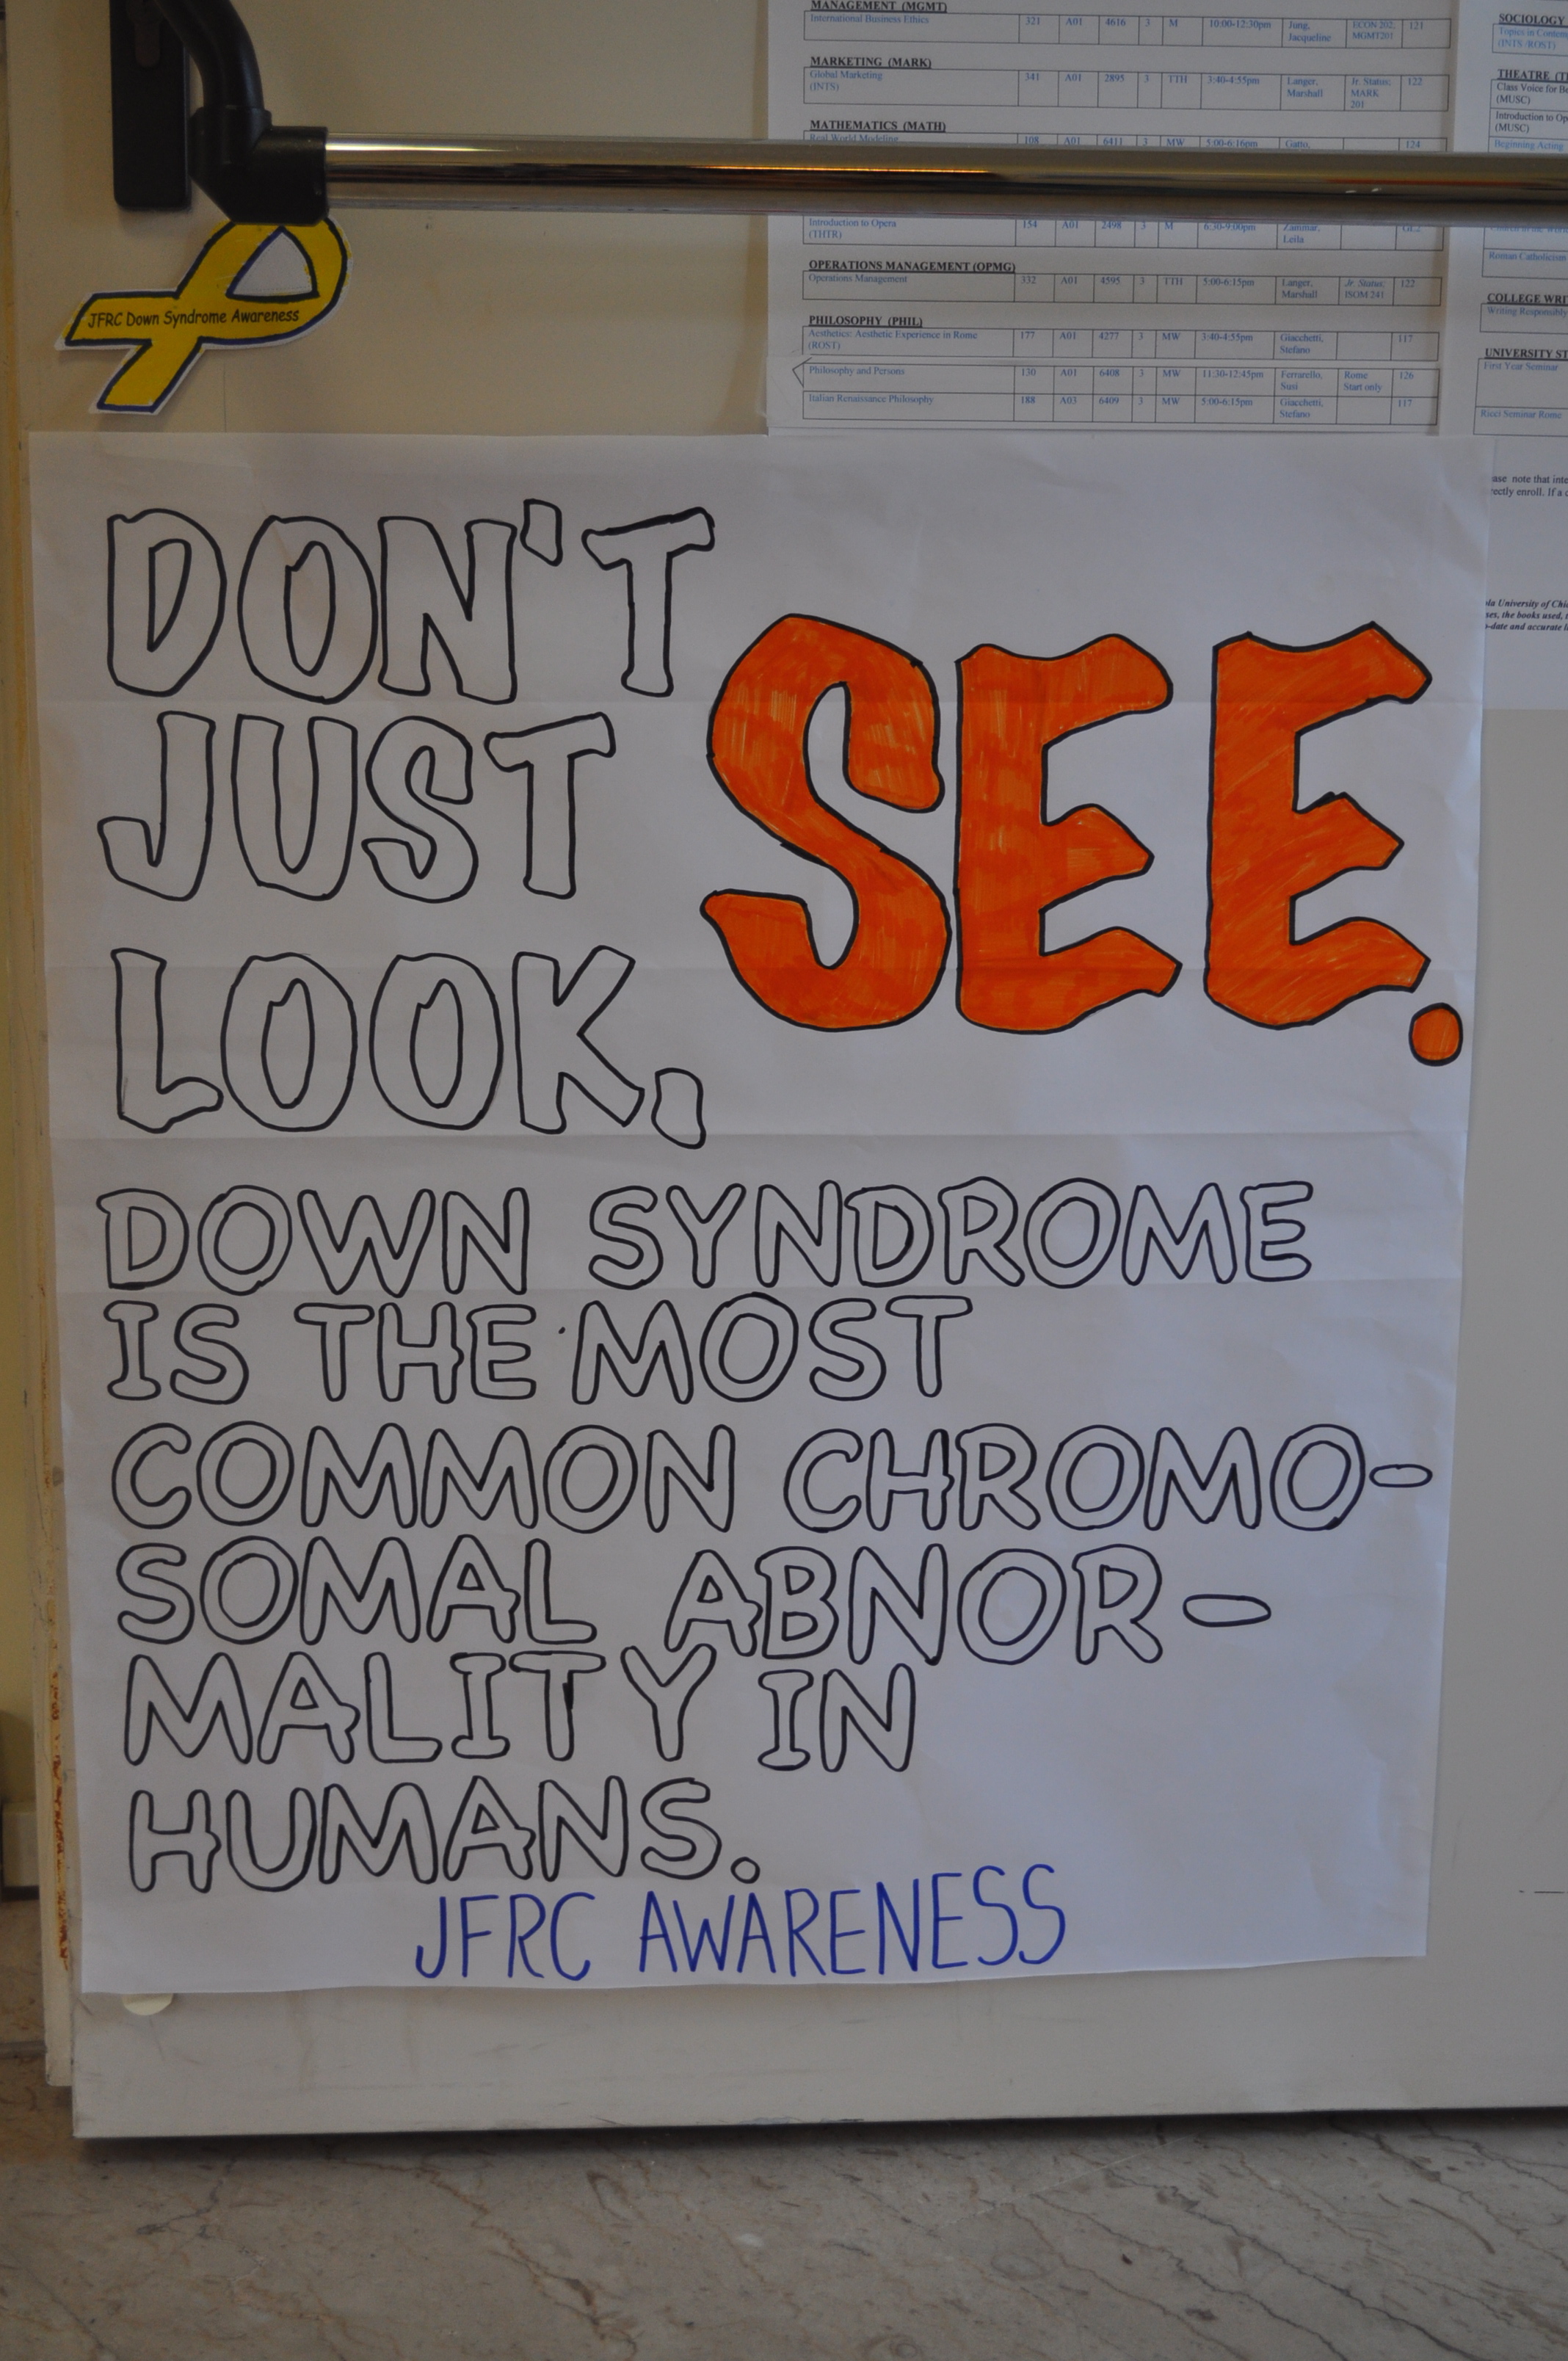 MANAGEMENT (MGMT)
International Business Ethics 321 A01 4616 3 M 10:00-12:30pm Jung, Jacqueline ECON 202, MGMT201 121
MARKETING (MARK)
Global Marketing (INTS) 341 A01 2895 3 TTH 3:40-4:55pm Langer, Marshall Jr. Status; MARK 201 122
MATHEMATICS (MATH)
Real World Modeling 108 A01 6411 3 MW 5:00-6:16pm Gatto, 124
Introduction to Opera (THTR) 154 A01 2498 3 M 6:30-9:00pm Zammar, Leila
OPERATIONS MANAGEMENT (OPMG)
Operations Management 332 A01 4595 3 TTH 5:00-6:15pm Langer, Marshall Jr. Status; ISOM 241 122
PHILOSOPHY (PHIL)
Aesthetics: Aesthetic Experience in Rome (ROST) 177 A01 4277 3 MW 3:40-4:55pm Giacchetti, Stefano 117
Philosophy and Persons 130 A01 6408 3 MW 11:30-12:45pm Ferrarello, Susi Rome Start only 126
Italian Renaissance Philosophy 188 A03 6409 3 MW 5:00-6:15pm Giacchetti, Stefano 117
SOCIOLOGY
Topics in
(INTS /ROST)
THEATRE
Class Voice for
(MUSC)
Introduction to
(MUSC)
Beginning Acting
Roman Catholicism
COLLEGE
Writing Responsibly
UNIVERSITY
First Year Seminar
Ricci Seminar Rome
note that
enroll. If a
University of
the books used,
and accurate
JFRC Down Syndrome Awareness
DON'T
JUST
LOOK,
SEE.
DOWN SYNDROME
IS THE MOST
COMMON CHROMO-
SOMAL ABNOR-
MALITY IN
HUMANS.
JFRC AWARENESS